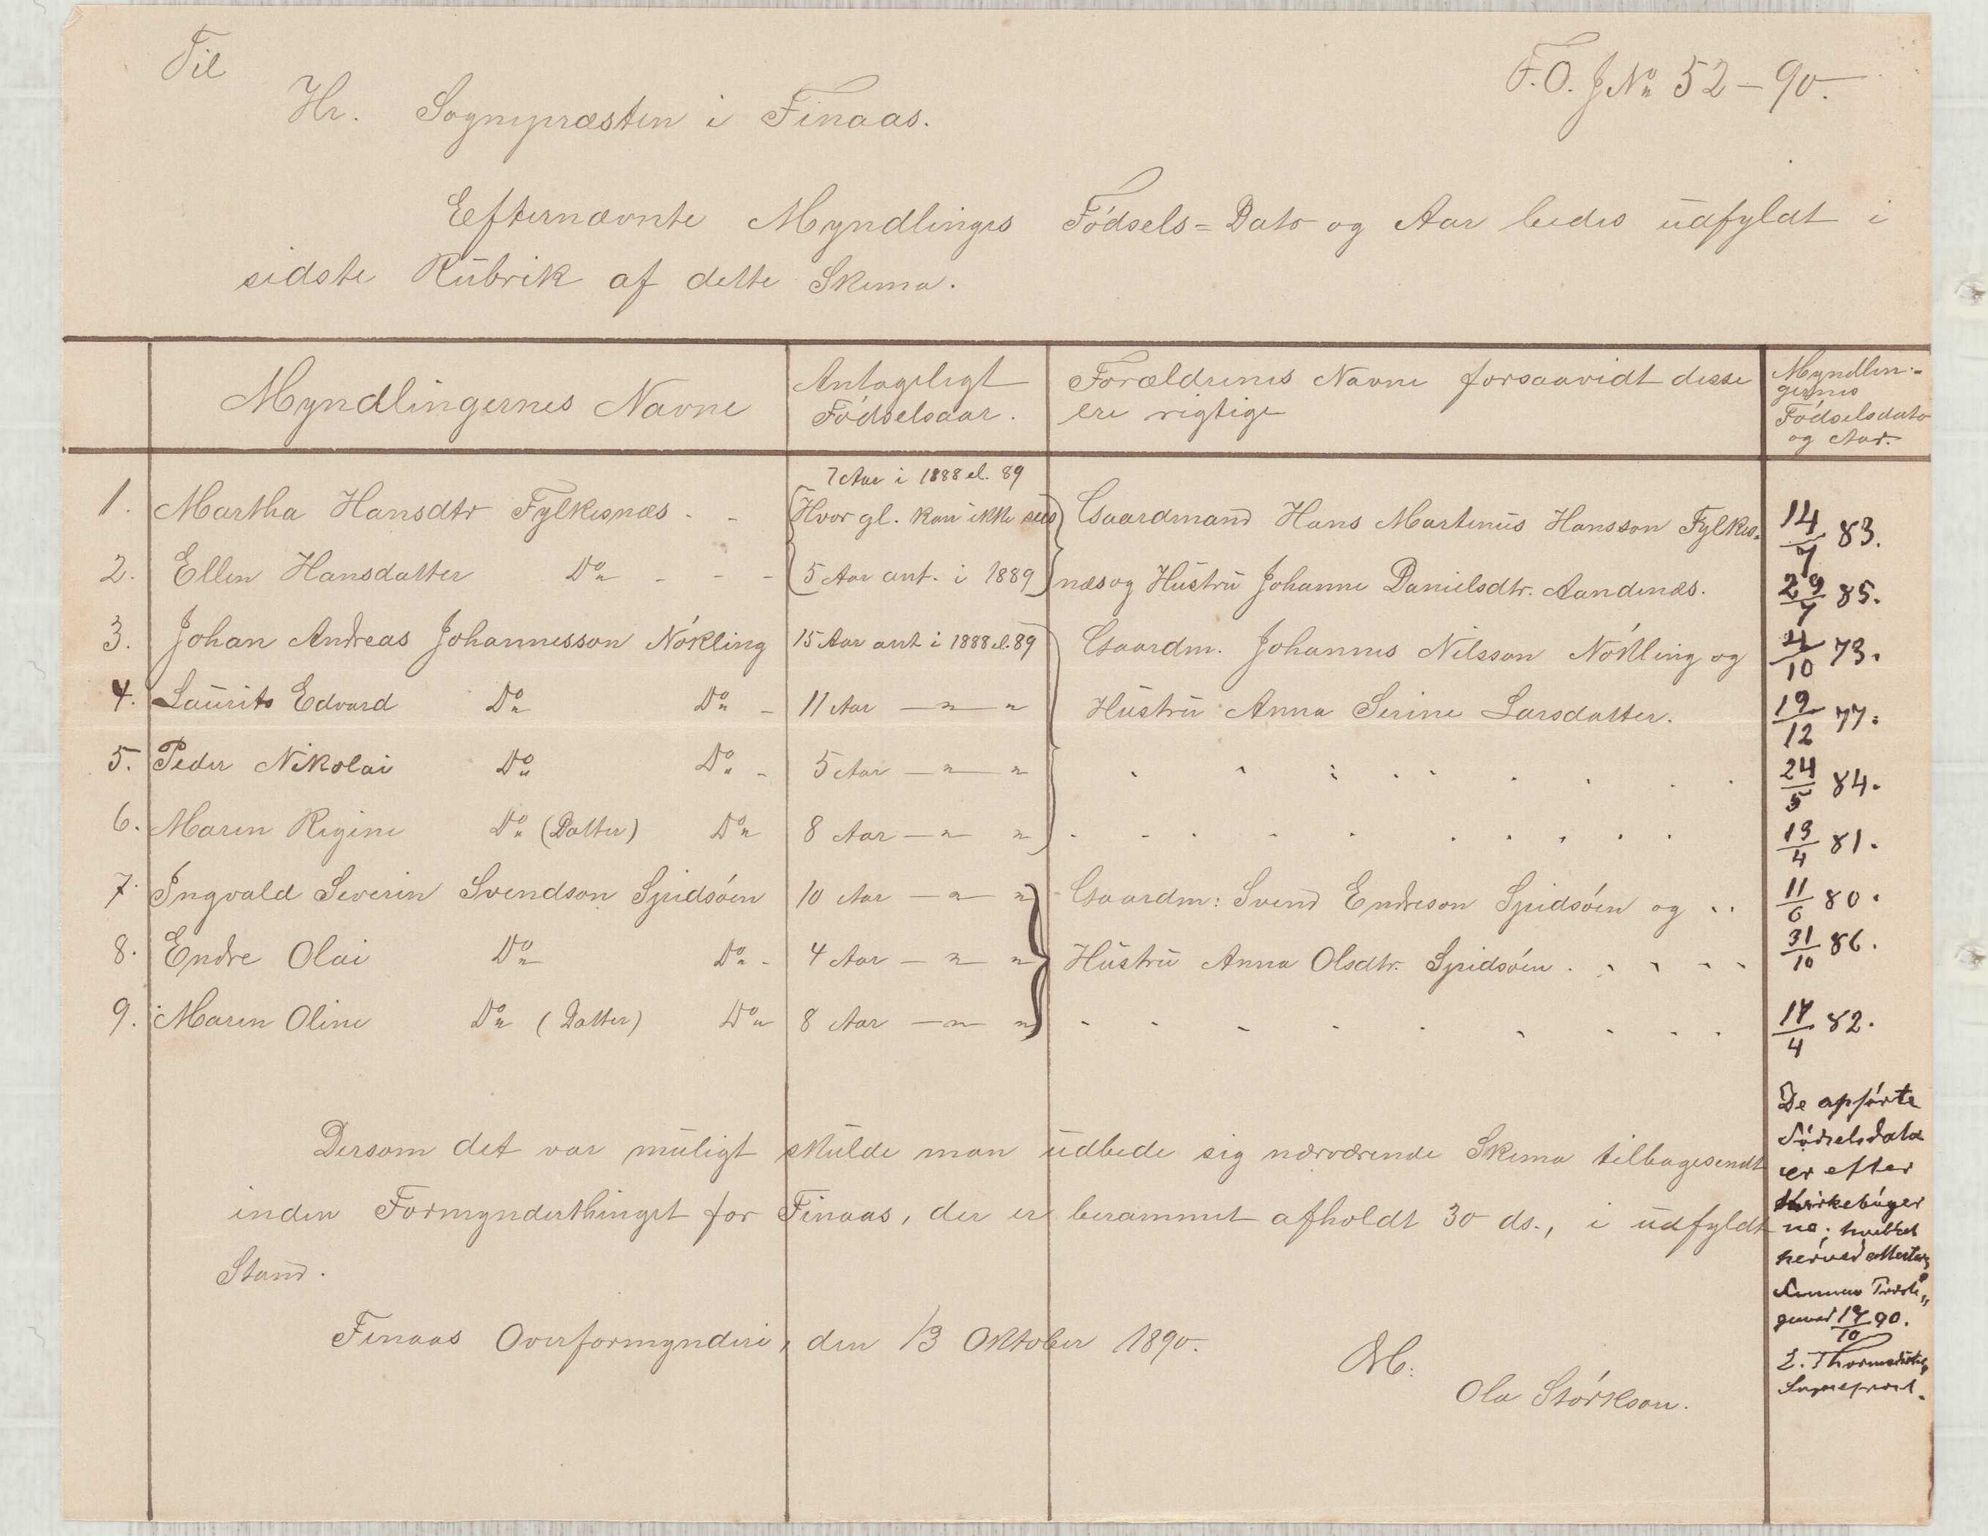 Til
F. O. J No 52 - 90.
Hr. Sognepræsten i Finaas.
Efternævnte Myndlinges Fødsels = Dato og Aar bedes udfyldt i
sidste Rubrik af dette Skema.
Myndlingernes Navne
Antageligt
Fødselsaar.
Forældrenes Navne forsaavidt disse
ere rigtige
Myndlin-
gernes
Fødselsdato
og Aar.
1. Martha Hansdtr Fylkesnæs - -
7 Aar i 1888 el. 89
Hvor gl. kan ikke sees
Gaardmand Hans Martinus Hansson Fylkes-
14/7 83.
2. Ellen Hansdatter Do - - -
5 Aar ant. i 1889
næs og Hustru Johanne Danielsdtr. Aandenæs.
29/7 85.
3. Johan Andreas Johannesson Nökling
15 Aar ant i 1888 el. 89
Gaardm. Johannes Nilsson Nökling og
4/10 73.
4. Laurits Edvard Do Do -
11 Aar — " — "
Hustru Anna Serine Larsdatter.
19/12 77.
5. Peder Nikolai Do Do -
5 Aar — " — "
24/5 84.
6. Maren Regine Do (Datter) Do
8 Aar — " — "
13/4 81.
7. Ingvald Severin Svendson Spidsöen
10 Aar — " — "
Gaardm: Svend Endreson Spidsöen og
11/6 80.
8. Endre Olai Do Do -
4 Aar — " — "
Hustru Anna Olsdtr. Spidsöen.
31/10 86.
9. Maren Oline Do (Datter) Do
8 Aar — " — "
17/4 82.
Dersom det var muligt skulde man udbede sig nærværende Skema tilbagesendt
inden Formynderthinget for Finaas, der er berammet afholdt 30 ds., i udfyldt
Stand.
Finaas Overformynderi, den 13 Oktober 1890.
Ola Störkson.
De opförte
Födselsdata
er efter
Kirkeböger
ne; hvilket
herved attesteres
17/10 90.
Sognepræst.